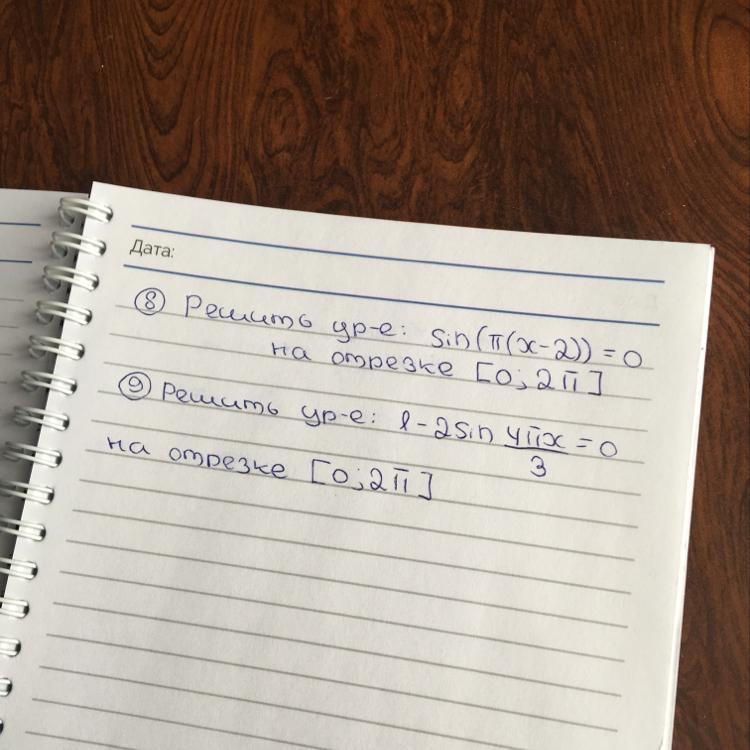 Дата:
⑧ Решить ур-е: sin(π(x-2)) = 0
на отрезке [0; 2π]
⑨ Решить ур-е: 1 - 2sin 4πx/3 = 0
на отрезке [0; 2π]